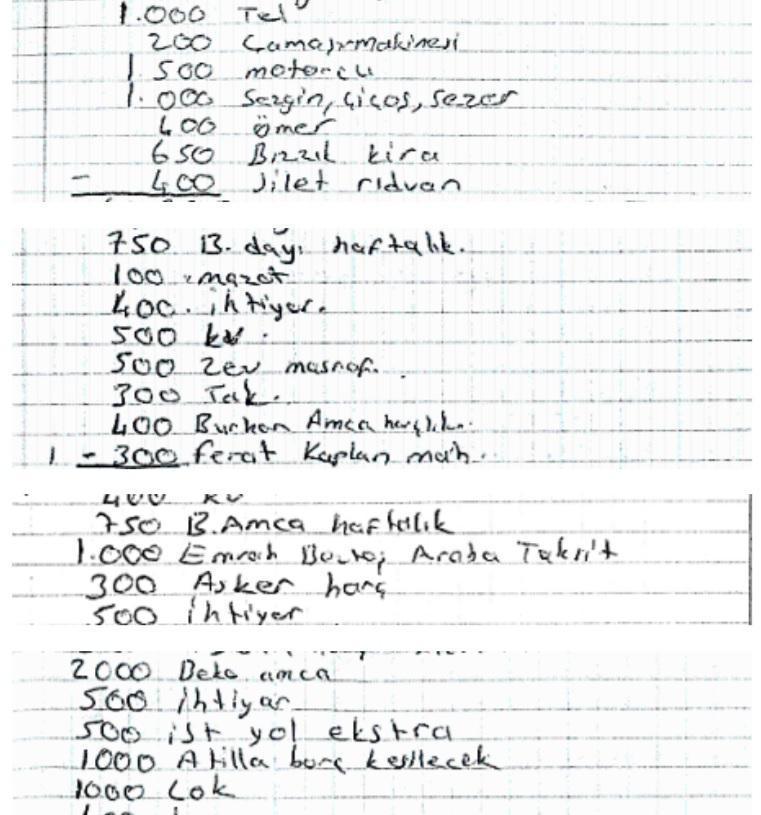 1.000 Tel
200 Çamaşırmakinesi
1.500 motorcu
1.000 Sezgin, çiços, sezer
400 ömer
650 kira
- 400 Jilet rıdvan
750 B. dayı haftalık.
100 mazot
400. ihtiyer.
500 kv.
500 2ev masraf.
300 Tak.
400 Burhan Amca harçlık.
1 - 300 ferat Kaplan mah.
400 kv
750 B.Amca haftalık
1.000 Emrah Araba Taksit
300 Asker harç
500 ihtiyer
2000 Beko amca
500 ihtiyar
500 ist yol ekstra
1000 Atilla borç kesilecek
1000 Çok